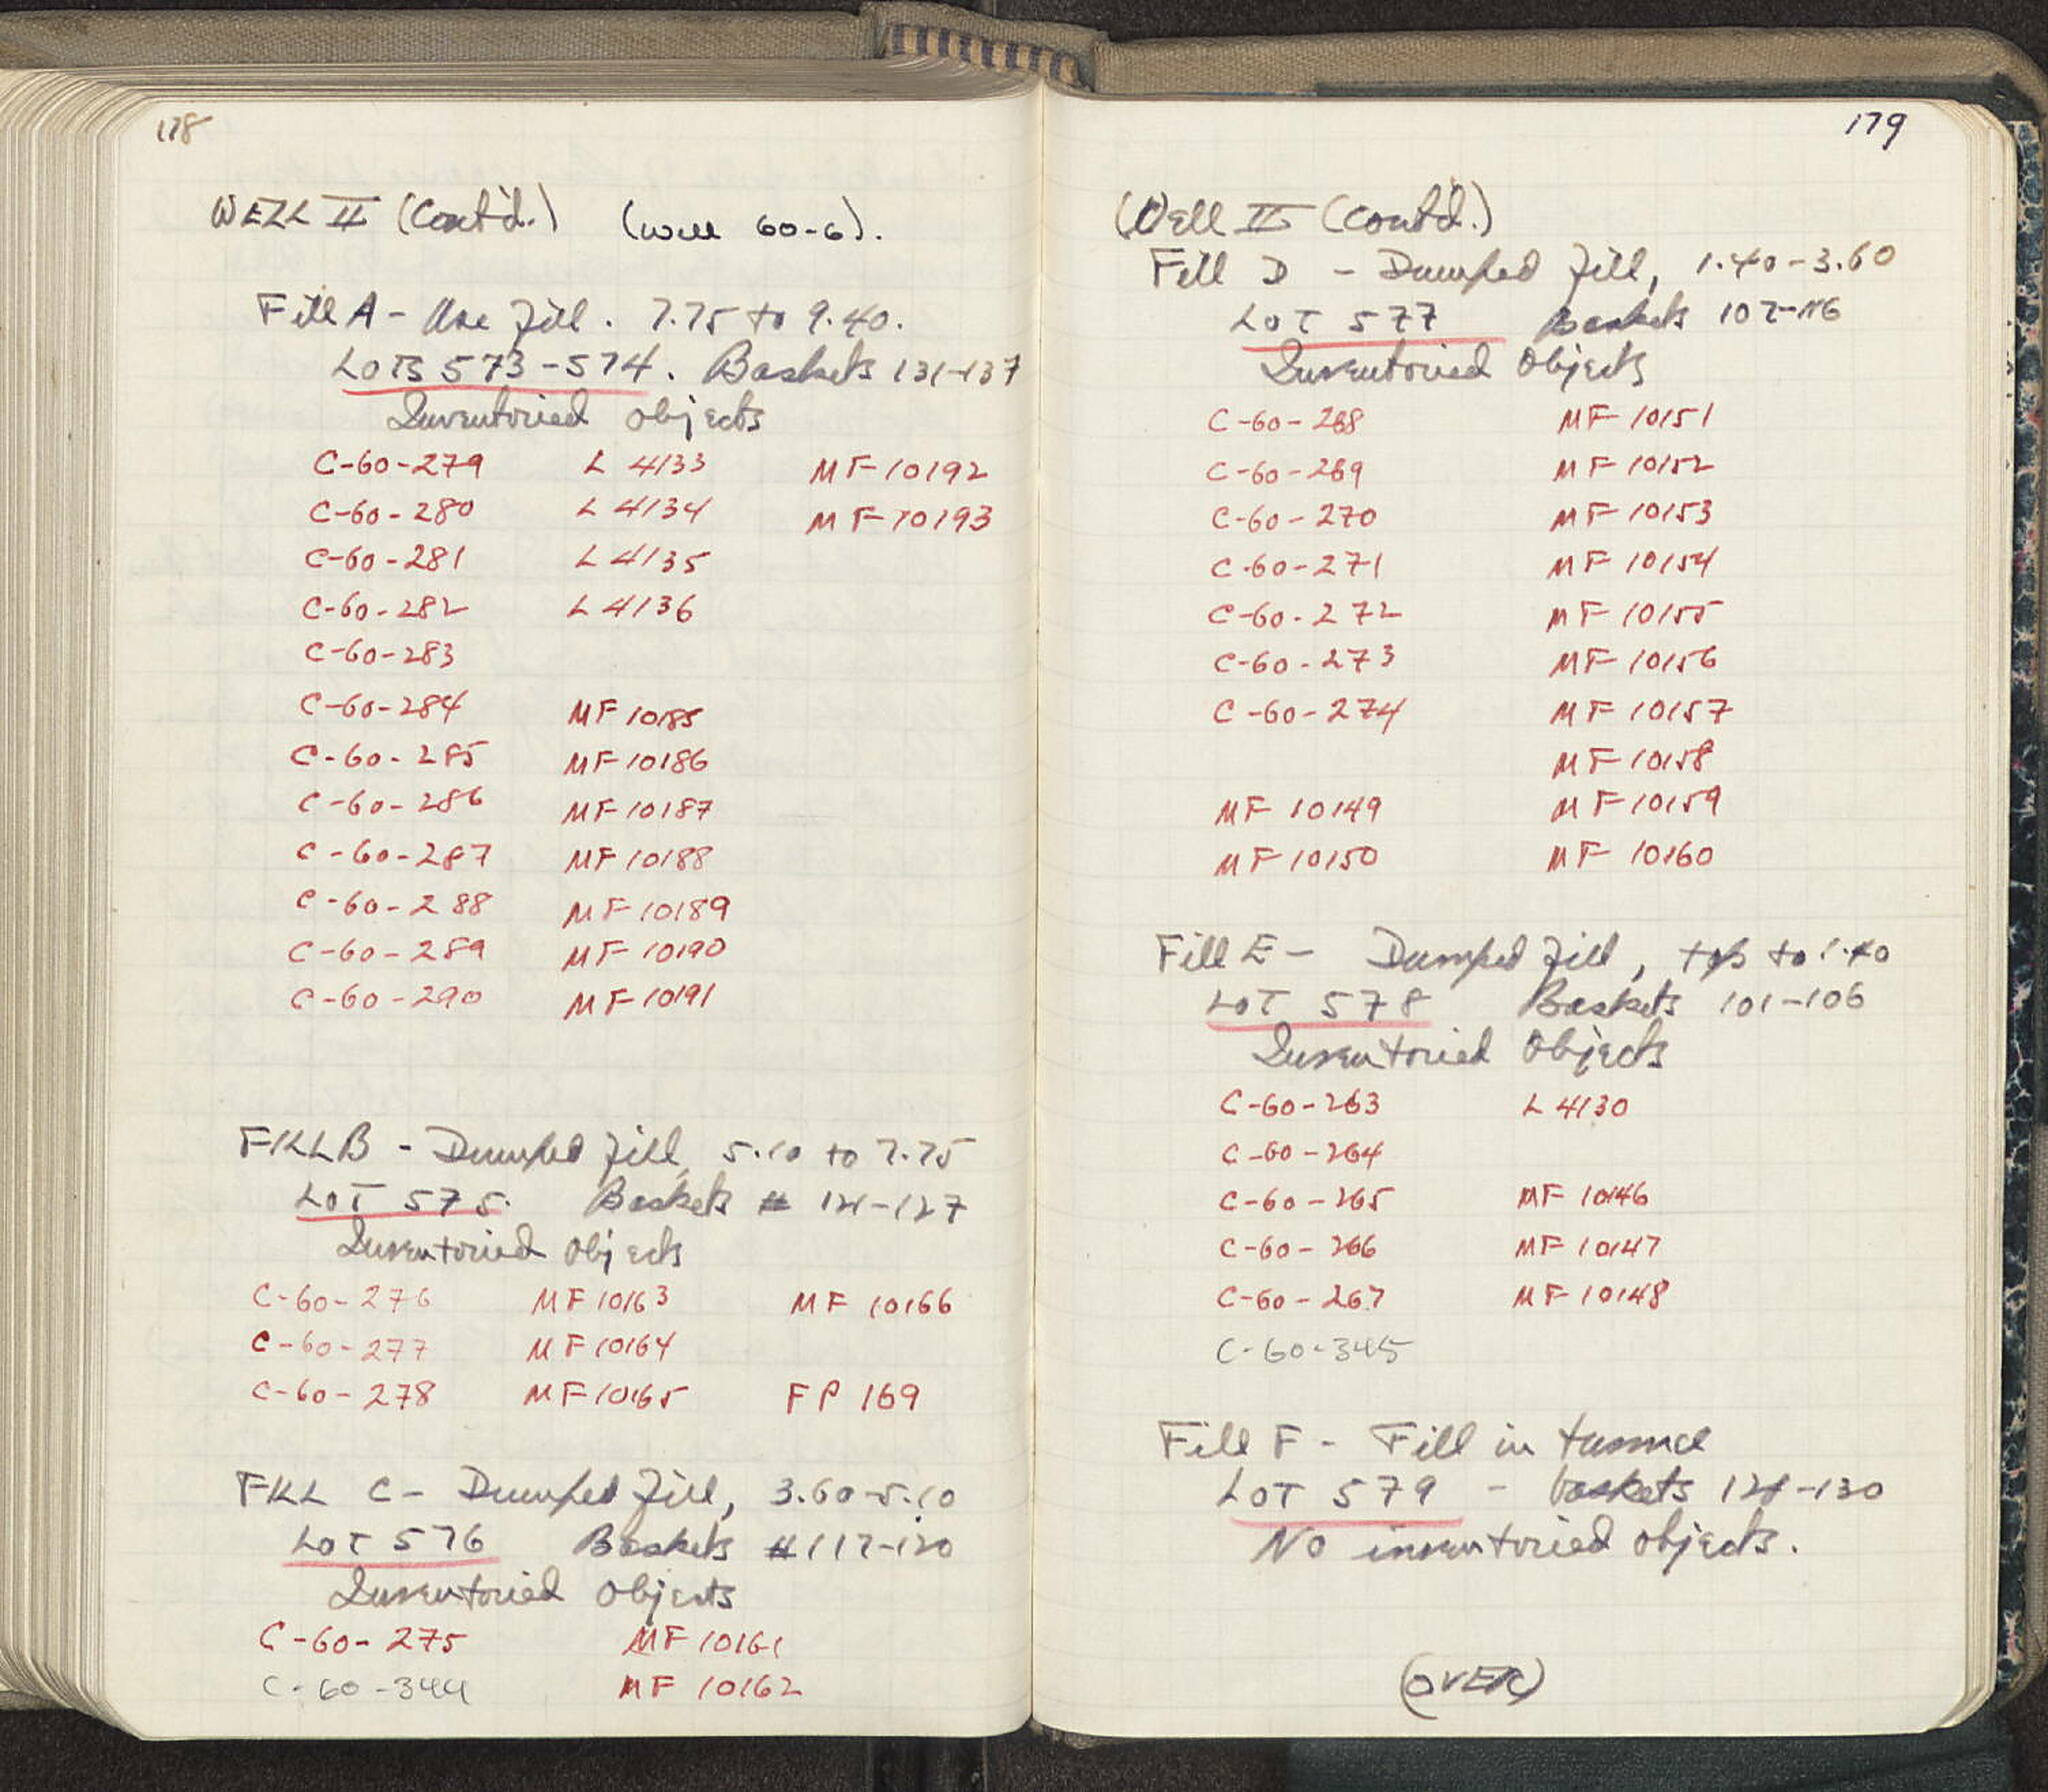 178
WELL II (Cont'd.) (Well 60-6).
Fill A - Use Fill. 7.75 to 9.40.
LOTS 573-574. Baskets 131-137
Inventoried Objects
C-60-279 L 4133 MF 10192
C-60-280 L 4134 MF 10193
C-60-281 L 4135
C-60-282 L 4136
C-60-283
C-60-284 MF 10185
C-60-285 MF 10186
C-60-286 MF 10187
C-60-287 MF 10188
C-60-288 MF 10189
C-60-289 MF 10190
C-60-290 MF 10191
FILL B - Dumped Fill, 5.10 to 7.75
LOT 575. Baskets # 121-127
Inventoried Objects
C-60-276 MF 10163 MF 10166
C-60-277 MF 10164
C-60-278 MF 10165 FP 169
FILL C - Dumped Fill, 3.60-5.10
LOT 576 Baskets # 117-120
Inventoried Objects
C-60-275 MF 10161
C-60-344 MF 10162
179
Well II (Contd.)
Fill D - Dumped Fill, 1.40-3.60
LOT 577 Baskets 107-116
Inventoried Objects
C-60-268 MF 10151
C-60-269 MF 10152
C-60-270 MF 10153
C-60-271 MF 10154
C-60-272 MF 10155
C-60-273 MF 10156
C-60-274 MF 10157
MF 10158
MF 10149 MF 10159
MF 10150 MF 10160
Fill E - Dumped Fill, top to 1.40
LOT 578 Baskets 101-106
Inventoried Objects
C-60-263 L 4130
C-60-264
C-60-265 MF 10146
C-60-266 MF 10147
C-60-267 MF 10148
C-60-345
Fill F - Fill in tunnel
LOT 579 - baskets 128-130
No inventoried objects.
(OVER)